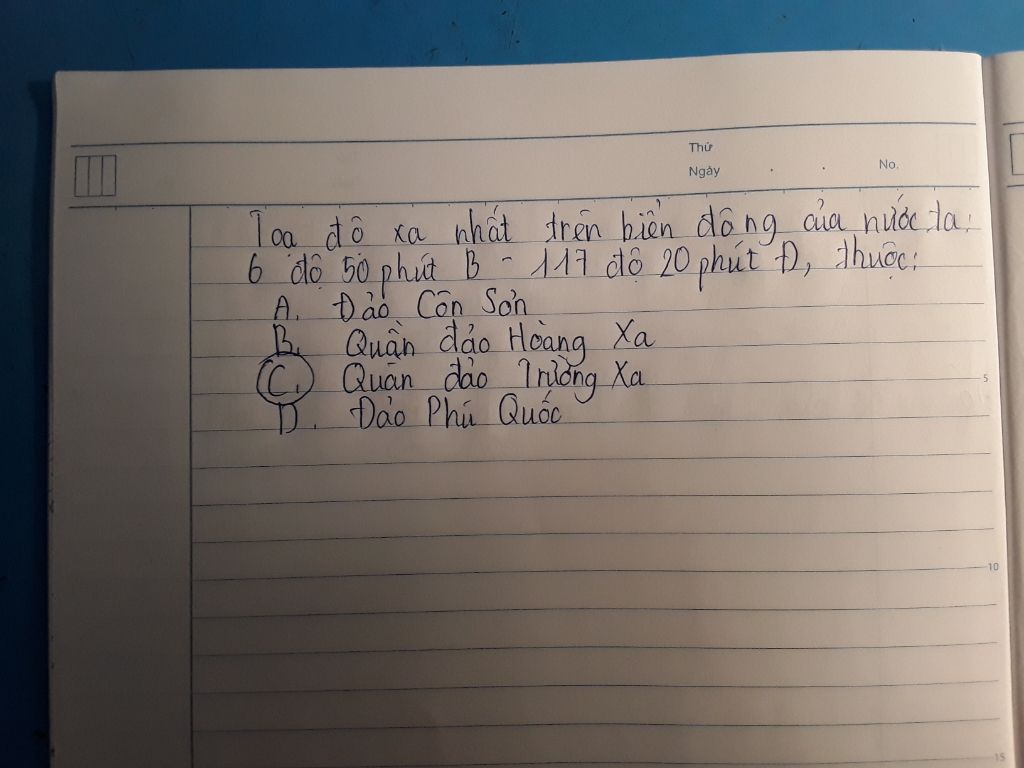 Thứ
Ngày . . No.
Toạ độ xa nhất trên biển đông của nước ta:
6 độ 50 phút B - 117 độ 20 phút Đ, thuộc:
A. Đảo Côn Sơn
B. Quần đảo Hoàng Xa
C. Quần đảo Trường Xa
D. Đảo Phú Quốc
5
10
15